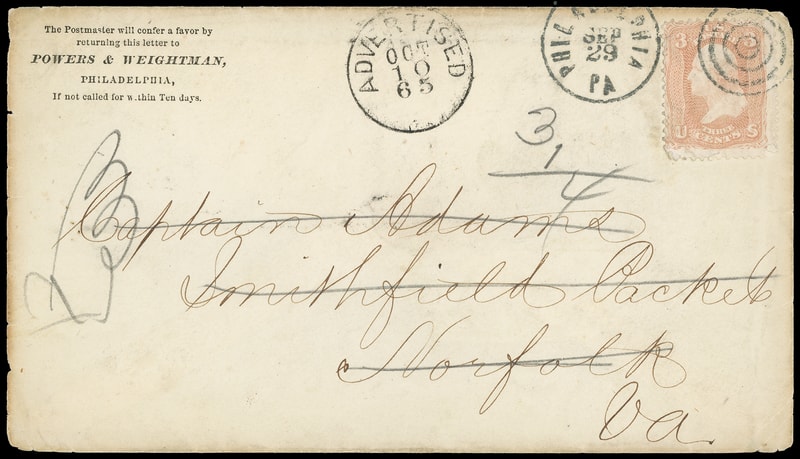 The Postmaster will confer a favor by
returning this letter to
POWERS & WEIGHTMAN,
PHILADELPHIA,
If not called for within Ten days.
ADVERTISED
OCT
10
65
PHILADELPHIA
SEP
29
PA
3
U THREE CENTS S
3
1
4
Captain Adams
Smithfield Packet
Norfolk
Va